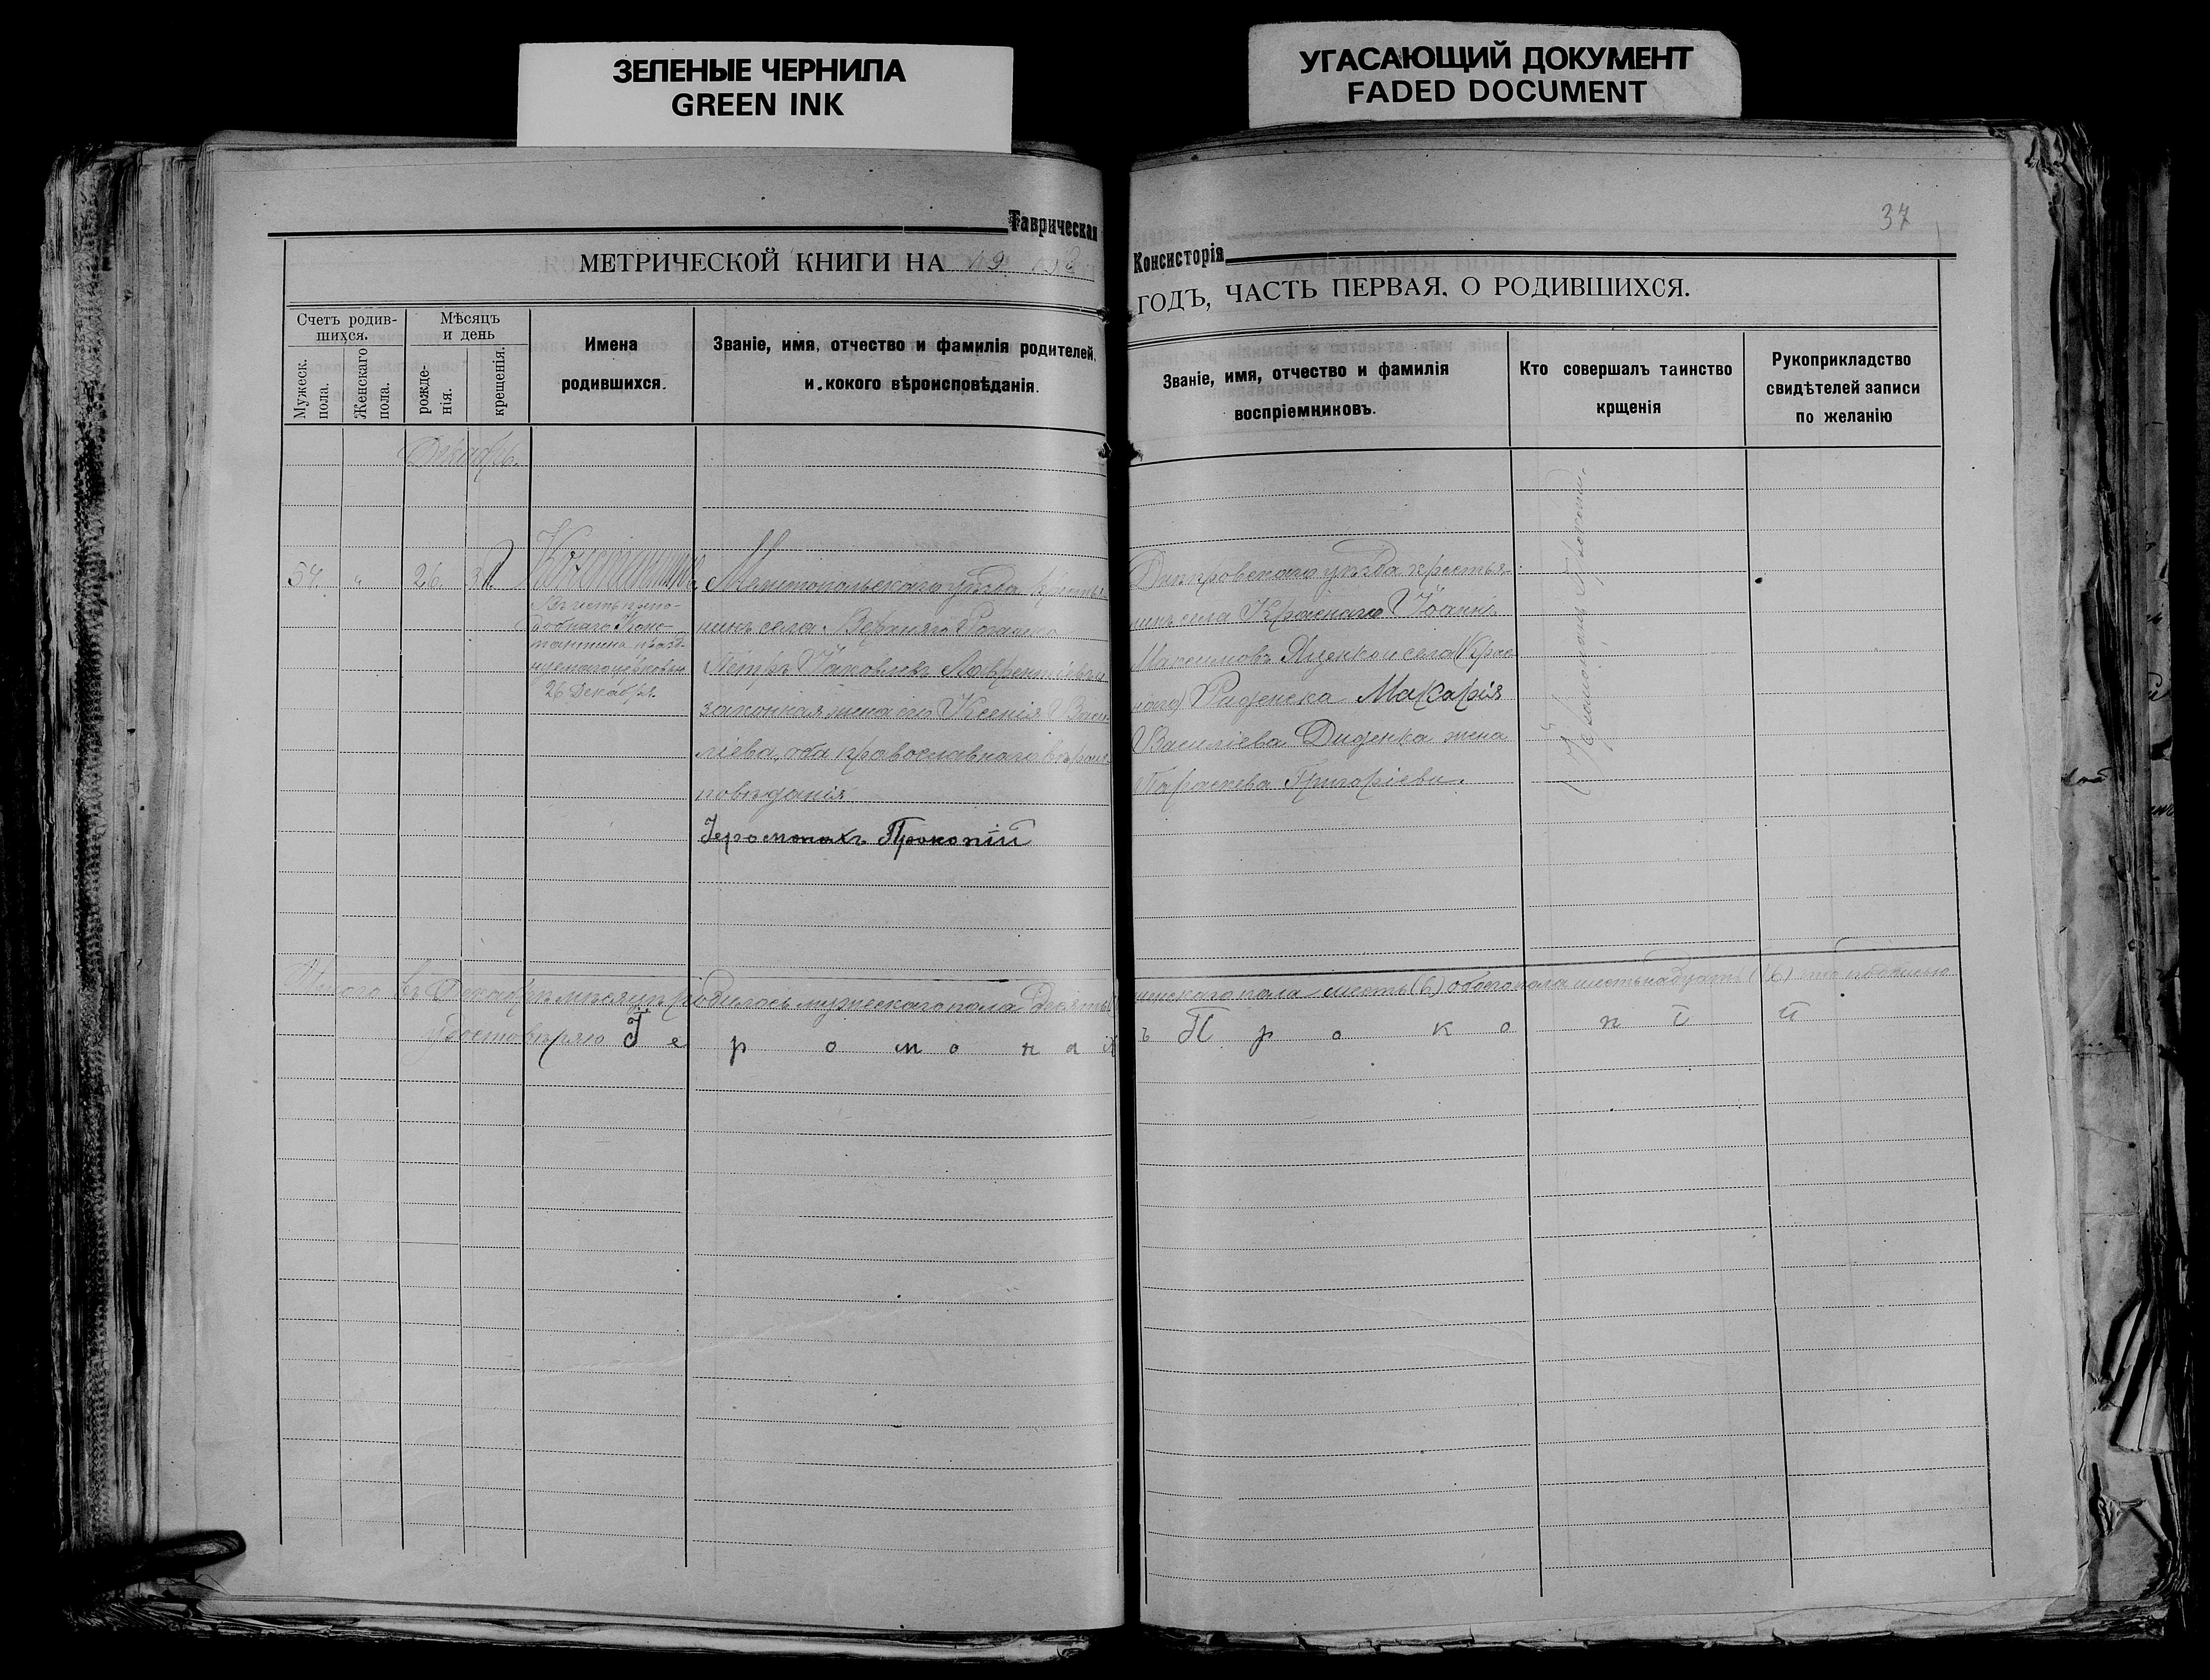 ЗЕЛЕНЫЕ ЧЕРНИЛА
GREEN INK
УГАСАЮЩИЙ ДОКУМЕНТ
FADED DOCUMENT
37
Таврическая Консисторія
МЕТРИЧЕСКОЙ КНИГИ НА 19 ГОДЪ, ЧАСТЬ ПЕРВАЯ, О РОДИВШИХСЯ.
Счетъ родив-
шихся.
Мужеск.
пола.
Женскаго
пола.
Мѣсяцъ
и день
рожде-
нія.
крещенія.
Имена
родившихся.
Званіе, имя, отчество и фамилія родителей,
и кокого вѣроисповѣданія.
Званіе, имя, отчество и фамилія
воспріемниковъ.
Кто совершалъ таинство
крщенія
Рукоприкладство
свидѣтелей записи
по желанію
Декабрь.
54. 26.
Константинъ
Въ честь препо-
добнаго Конс-
тантина празд-
нуемаго церковью
26 Декабря.
Мелитопольскаго уѣзда крестья
нинъ села Верхняго Рогачика
Петръ Іаковлевъ Лаврентьевъ и
законная жена его Ксенія Васи
ліева, оба православнаго вѣроис
повѣданія
Іеромонахъ Прокопій
Днѣпровскаго уѣзда крестья
нинъ села Краснаго Іоаннъ
Максимовъ Яценко и села
Макарія
Василіева Диденка жена
Параскева Григоріева.
Іеромонахъ Прокопій.
Итого въ Декабрѣ мѣсяцѣ родилось мужескаго пола десять женскаго пола шесть (6) обоего пола шестьнадцать (16)
удостовѣряю Іеромонахъ Прокопій